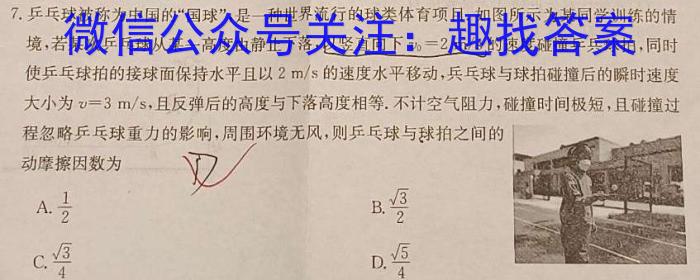 7.乒乓球被称为中国的“国球”,是一种世界流行的球类体育项目,如图所示为某同学训练的情
微信公众号关注：趣找答案
境,若某次乒乓球从某一高度由静止下落,以竖直向下v₀=2 m/s的速度碰撞乒乓球拍,同时
使乒乓球拍的接球面保持水平且以2 m/s的速度水平移动,乒乓球与球拍碰撞后的瞬时速度
大小为v=3 m/s,且反弹后的高度与下落高度相等.不计空气阻力,碰撞时间极短,且碰撞过
程忽略乒乓球重力的影响,周围环境无风,则乒乓球与球拍之间的
动摩擦因数为
D
A. 1/2
B. √3/2
C. √3/4
D. √5/4